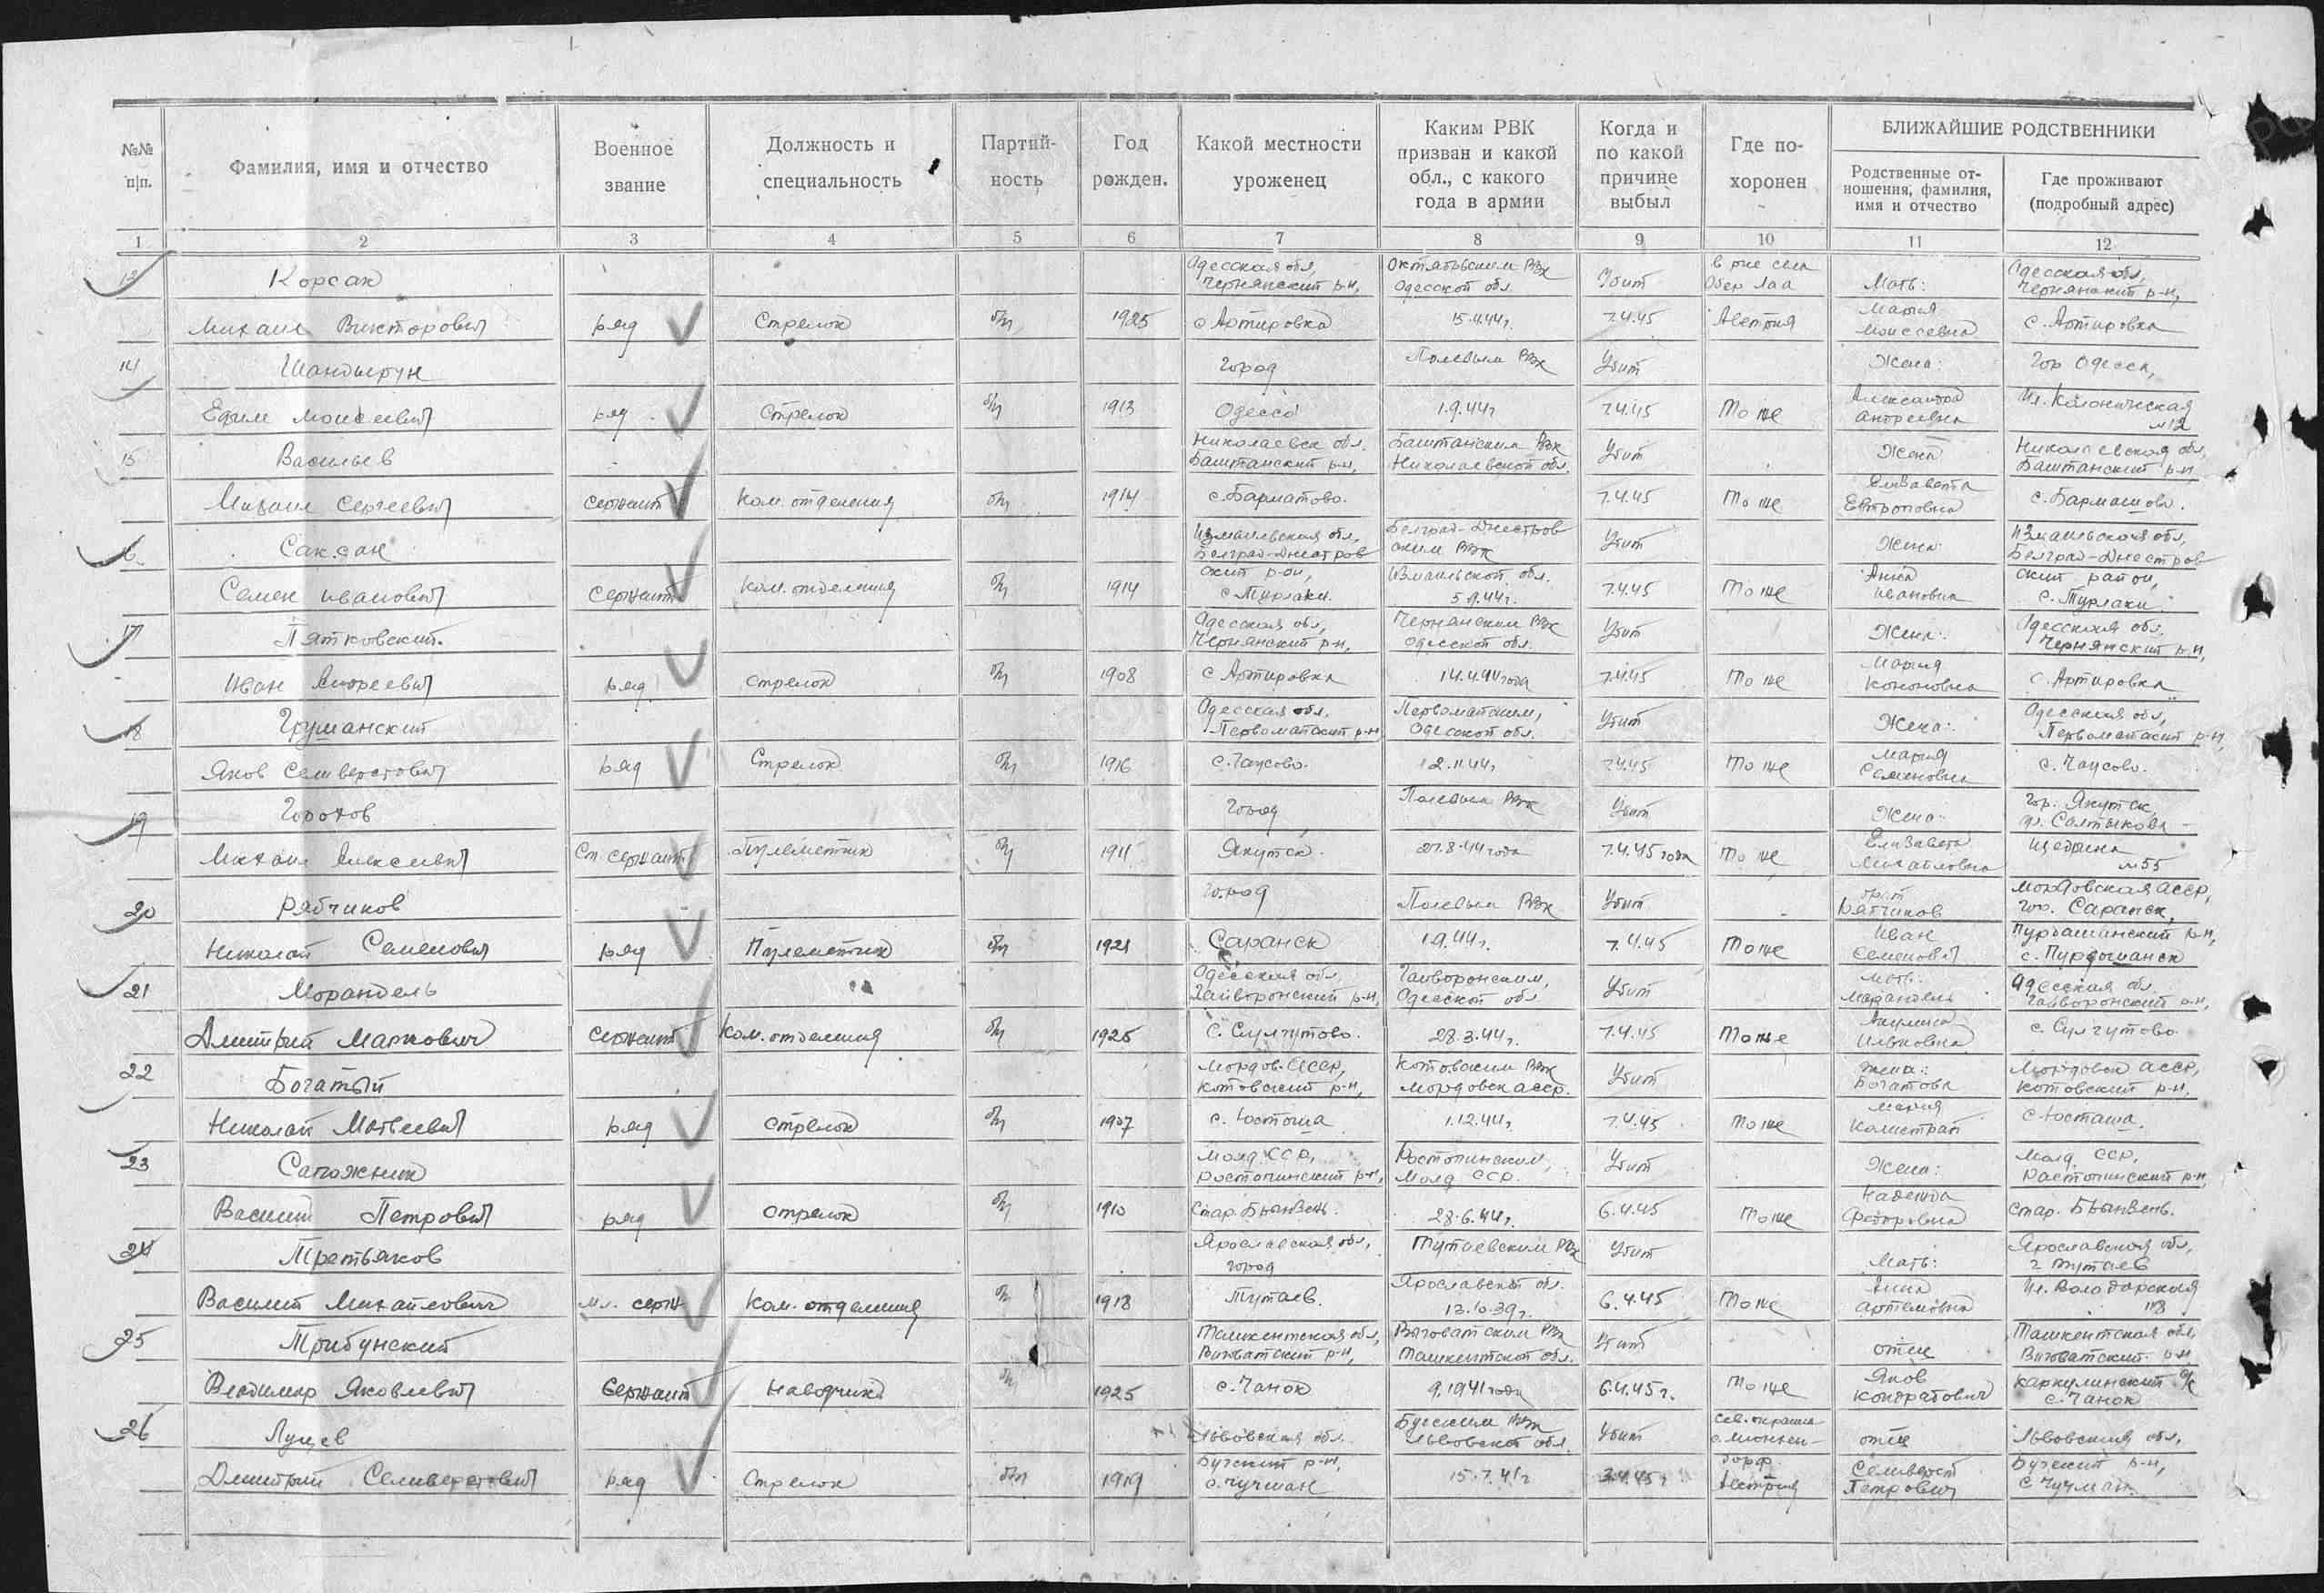 №№ п|п.
Фамилия, имя и отчество
Военное звание
Должность и специальность
Партий-
ность
Год рожден.
Какой местности уроженец
Каким РВК
призван и какой
обл., с какого
года в армии
Когда и
по какой
причине
выбыл
Где по-
хоронен
БЛИЖАЙШИЕ РОДСТВЕННИКИ
Родственные от-
ношения, фамилия,
имя и отчество
Где проживают
(подробный адрес)
1 2 3 4 5 6 7 8 9 10 11 12
13 Корсак Одесская обл, Октябрьским РВК Убит Мать: Одесская обл,
Чернянский р-н, Одесской обл. Чернянский р-н,
Михаил Викторович ряд Стрелок б/п 1925 с Артировка 15.4.44г. 7.4.45 Австрия Мария Моисеевна с. Артировка
14 Город Полевым РВК Убит Жена: Гор Одесса,
Ефим Моисеевич ряд. Стрелок б/п 1913 Одесса 1.9.44г 7.4.45 То же Александра Андреевна
№12
15 Васильев Николаевск обл. Баштанским РВК Убит Жена Николаевская обл,
Баштанский р-н, Николаевской обл. Баштанский р-н,
Михаил Сергеевич сержант Ком. отделения б/п 1914 с. Барматово. 7.4.45 То же Елизавета с. Бармашово.
16 Саксан Измаильская обл, Белград-Днестров Убит Жена Измаильская обл,
Белград-Днестров ским РВК Белград-Днестров
Семен Иванович Сержант Ком. отделения б/п 1914 ский р-он, Измаильской обл. 7.4.45 То же Анна Ивановна ский район,
с Турлаки. 5.9.44г. с. Турлаки
17 Пятковский. Одесская обл, Чернянским РВК Убит Жена: Одесская обл.
Чернянский р-н, Одесской обл. Чернянский р-н,
Иван Андреевич ряд стрелок б/п 1908 с Артировка 14.4.44 года 7.4.45 То же Мария Кононовна с. Артировка
18 Грушанский Одесская обл. Первомайским, Убит Жена: Одесская обл,
Первомайский р-н Одесской обл. Первомайский р-н,
Яков Селиверстович ряд Стрелок б/п 1916 с. Чаусово. 12.11.44г 7.4.45 То же Мария Семеновна с. Чаусово.
19 Город Полевым РВК Убит Жена: Гор. Якутск,
Михаил Алексеевич Ст. сержант Пулеметчик б/п 1911 Якутск. 27.8.44 года 7.4.45 года То же Елизавета Михайловна Щедрина
№55
20 Рябчиков Город Полевым РВК Убит брат Мордовская АССР,
гор. Саранск,
Николай Семенович ряд Пулеметчик б/п 1921 Саранск 1.9.44г. 7.4.45 То же Иван Семенович
21 Морандель Одесская обл, Гайворонским, Убит Мать: Одесская обл.
Гайворонский р-н, Одесской обл Гайворонский р-н,
Дмитрий Маркович сержант Ком. отделения б/п 1925 28.3.44г. 7.4.45 То же Акулина Ильковна
22 Богатый Мордов. АССР, Котовским РВК Убит Жена: Мордовск АССР,
Котовский р-н, Мордовск АССР. Богатова Котовский р-н,
Николай Матвеевич ряд стрелок б/п 1907 с. Юстоша 1.12.44г 7.4.45 То же Мария с. Юсташа.
23 Сапожник Молд. ССР, Убит Жена: Молд. ССР,
Молд ССР.
Василий Петрович ряд стрелок б/п 1910 Стар. Брынзень. 28.6.44г. 6.4.45 То же Надежда Федоровна Стар. Брынзень.
24 Третьяков Ярославская обл, Тутаевским РВК Убит Мать: Ярославская обл,
город Ярославской обл. г Тутаев
Василий Михайлович мл. серж Ком. отделения б/п 1918 Тутаев. 13.10.39г. 6.4.45 То же Анна Артемовна Ул. Володарская
25 Трибунский Ташкентская обл, Убит отец Ташкентская обл,
Ташкентской обл.
Владимир Яковлевич Сержант Наводчик б/п 1925 с. Чанок 9.1941 года 6.4.45г. То же Яков Кондратович с. Чанок
26 Лущев Львовская обл. Бусским РВК Убит Сев. окраина отец Львовская обл,
Львовской обл.
Дмитрий Селиверстович ряд Стрелок б/п 1919 с. Чучман 15.7.41г 3.4.45г Австрия Селиверст Петрович с Чучман.